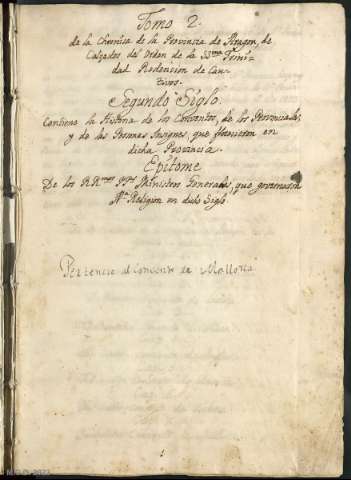 Tomo 2.
de la Chronica de la Provincia de Aragon, de
Calzados del Orden de la SSma Trini-
dad Redencion de Cau-
tivos.
Segundo Siglo.
Contiene la Historia de los Conventos, de los Provinciales,
y de las Personas Insignes, que florecieron en
dicha Provincia.
Epitome
De los RRmos PPes Ministros Generales, que governaron
Nra Religion en dicho Siglo
Pertenece al Convento de Mallorca